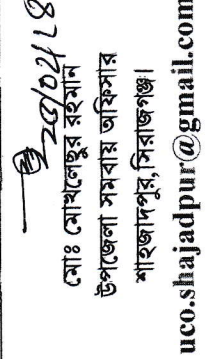 মোঃ মোখলেছুর রহমান
উপজেলা সমবায় অফিসার
শাহজাদপুর,সিরাজগঞ্জ।
uco.shajadpur@gmail.com